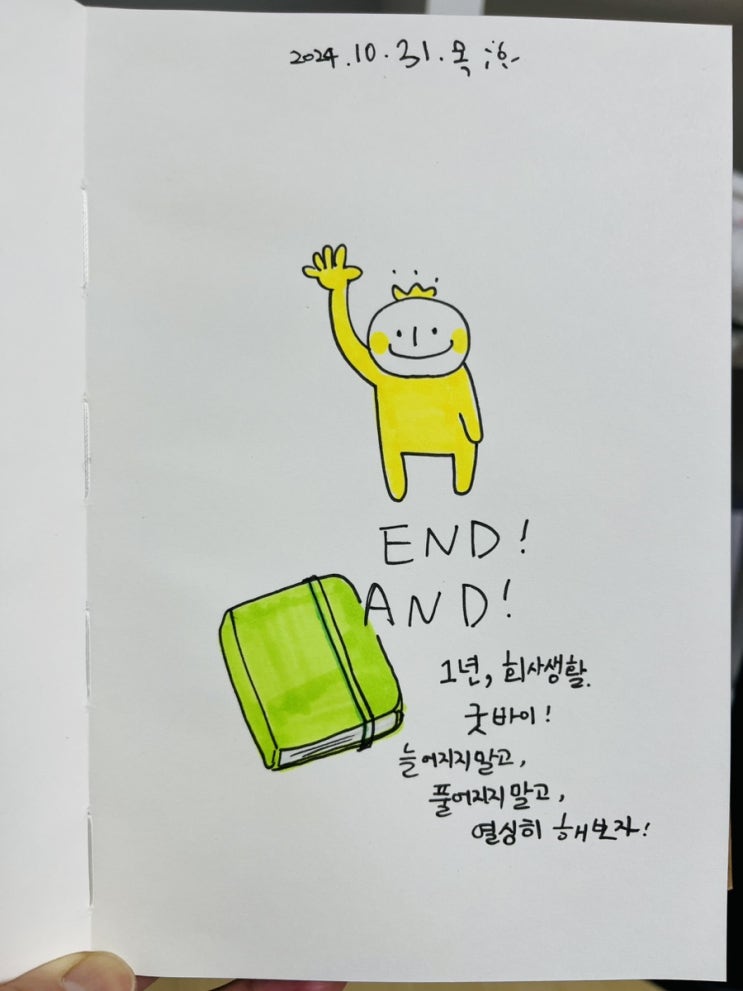 2024.10.31.목
END!
AND!
1년, 회사생활.
굿바이!
늘어지지말고,
풀어지지말고,
열심히 해보자!